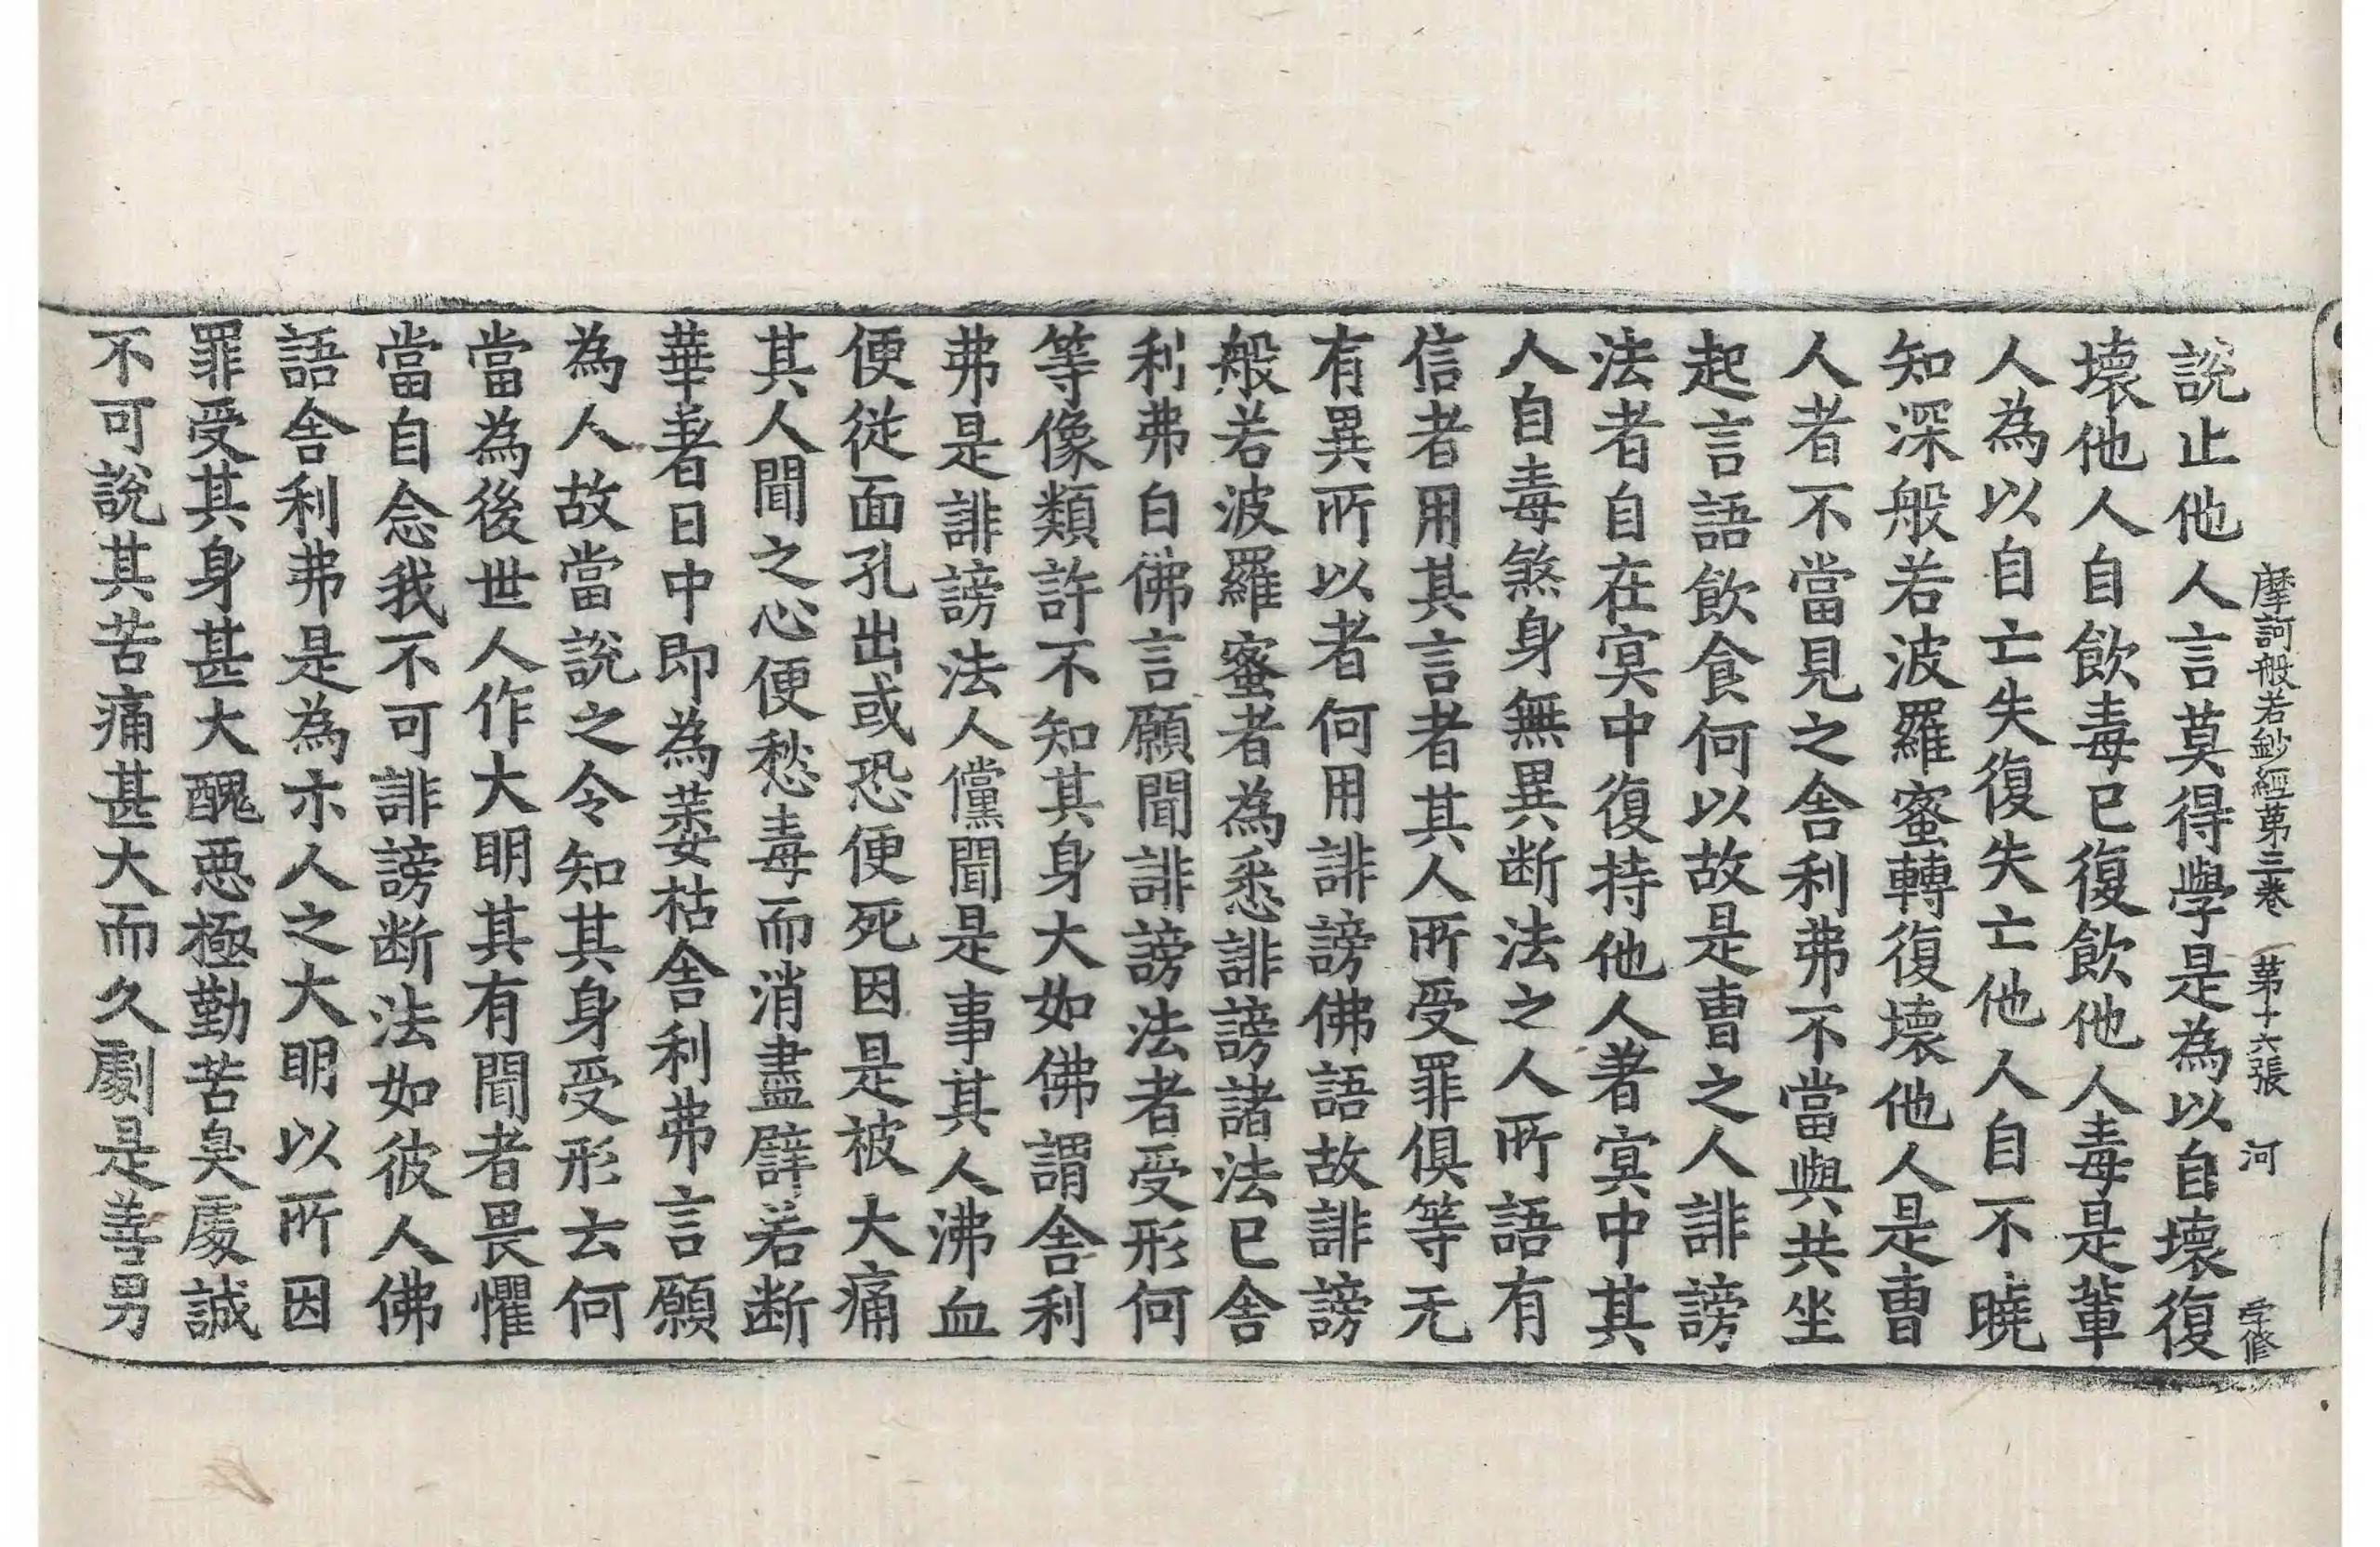 摩訶般若鈔經苐三卷 苐十六張 河 孝修
說止他人言莫得學是為以自壞復
壞他人自飲毒已復飲他人毒是軰
人為以自亡失復失亡他人自不曉
知深般若波羅蜜轉復壞他人是曺
人者不當見之舎利弗不當與共坐
起言語飲食何以故是曺之人誹謗
法者自在㝠中復持他人著㝠中其
人自毒煞身無異断法之人所語有
信者用其言者其人所受罪俱等无
有異所以者何用誹謗佛語故誹謗
般若波羅蜜者為悉誹謗諸法已舎
利弗白佛言願聞誹謗法者受形何
等像類許不知其身大如佛謂舎利
弗是誹謗法人儻聞是事其人沸血
便從面孔出或恐便死因是被大痛
其人聞之心便愁毒而消盡譬若断
華著日中即為萎枯舎利弗言願
為人故當說之令知其身受形云何
當為後世人作大明其有聞者畏懼
當自念我不可誹謗断法如彼人佛
語舎利弗是為示人之大明以所因
罪受其身甚大醜惡極勤苦臭處誠
不可說其苦痛甚大而久劇是善男